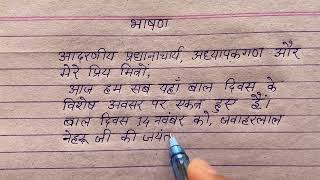 भाषण
आदरणीय प्रधानाचार्य, अध्यापकगण और
मेरे प्रिय मित्रों,
आज हम सब यहाँ बाल दिवस के
विशेष अवसर पर एकत्र हुए हैं।
बाल दिवस 14 नवंबर को, जवाहरलाल
नेहरू जी की जयंत